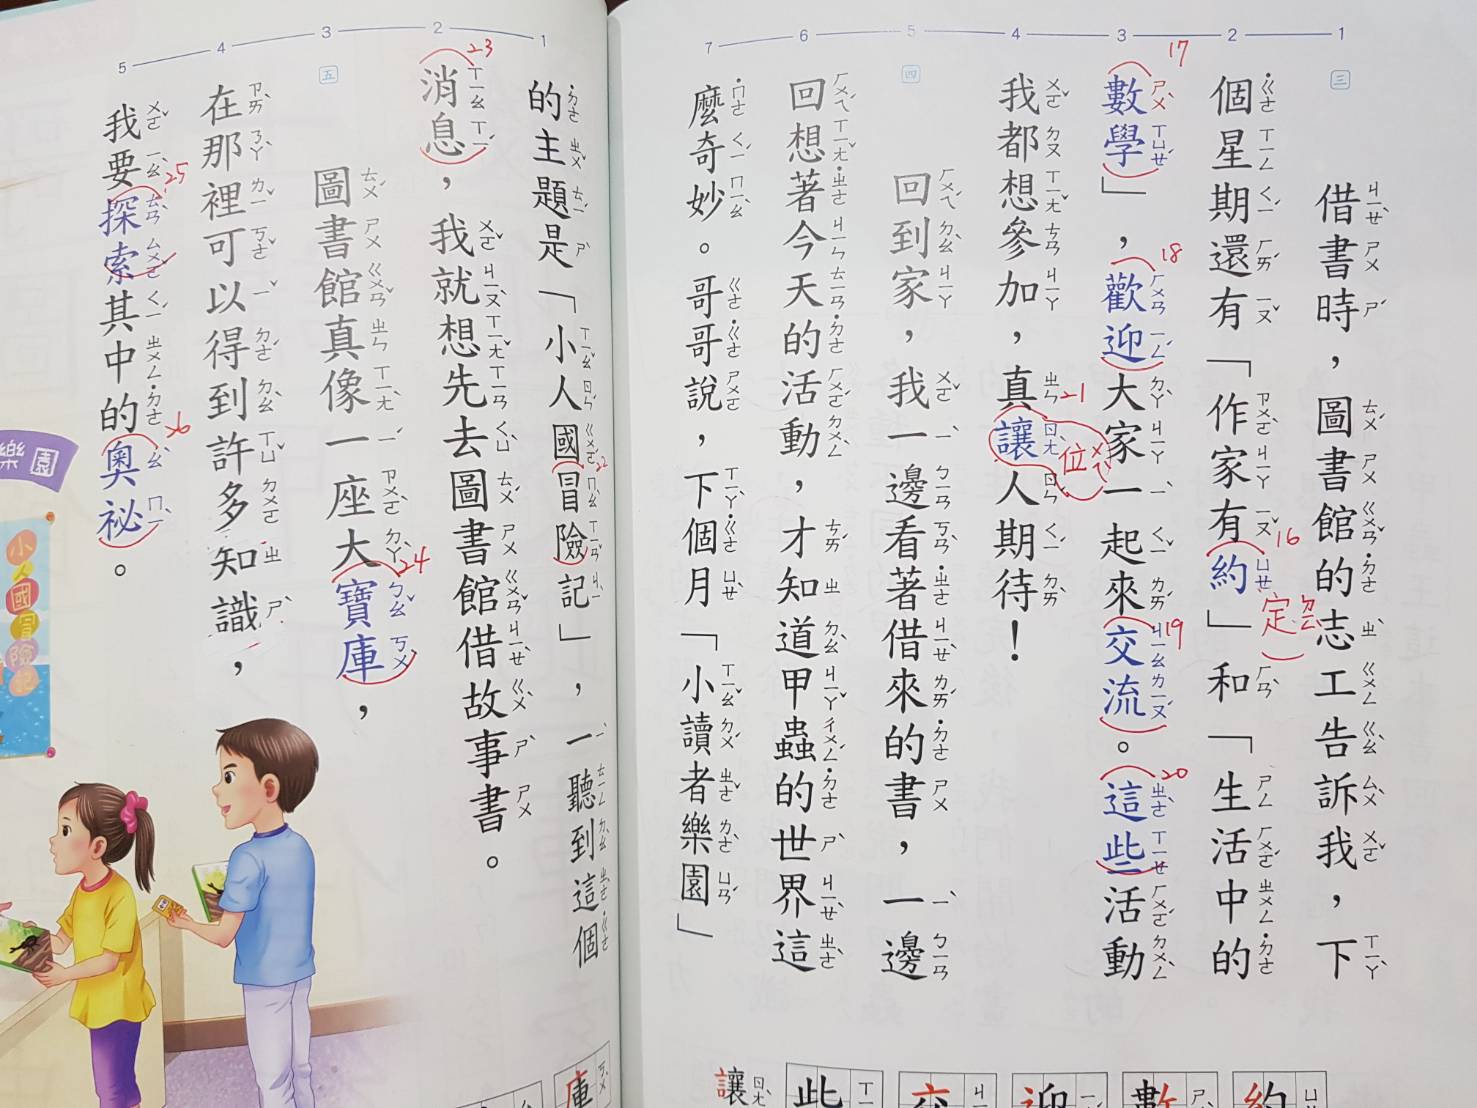 三
借書時，圖書館的志工告訴我，下
個星期還有「作家有約」和「生活中的
數學」，歡迎大家一起來交流。這些活動
我都想參加，真讓人期待！
四
回到家，我一邊看著借來的書，一邊
回想著今天的活動，才知道甲蟲的世界這
麼奇妙。哥哥說，下個月「小讀者樂園」
的主題是「小人國冒險記」，一聽到這個
消息，我就想先去圖書館借故事書。
五
圖書館真像一座大寶庫，
在那裡可以得到許多知識，
我要探索其中的奧祕。
1
2
3
4
5
6
7
1
2
3
4
5
16
定
17
18
19
20
21
位
22
23
24
25
26
樂園
小人國冒險記
約
數
迎
交
此
讓
庫